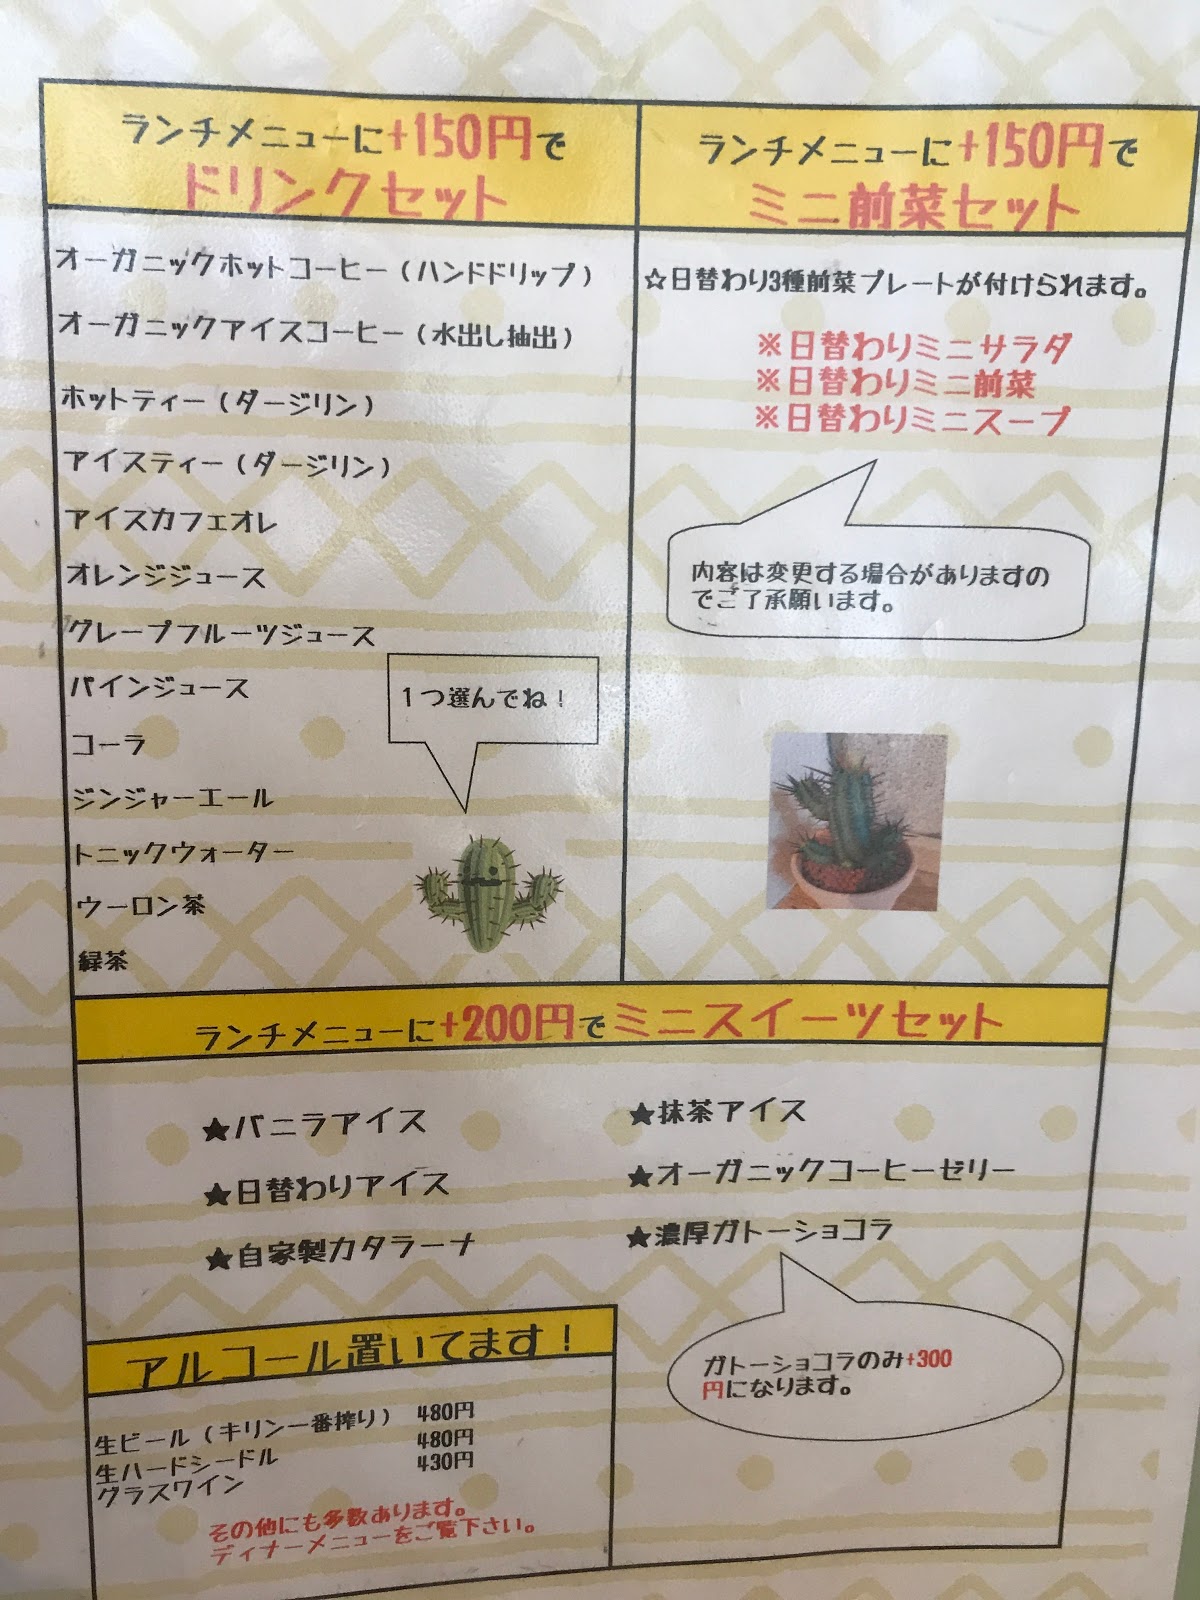 ランチメニューに+150円で
ドリンクセット
オーガニックホットコーヒー（ハンドドリップ）
オーガニックアイスコーヒー（水出し抽出）
ホットティー（ダージリン）
アイスティー（ダージリン）
アイスカフェオレ
オレンジジュース
グレープフルーツジュース
パインジュース
コーラ
ジンジャーエール
トニックウォーター
ウーロン茶
緑茶
１つ選んでね！
ランチメニューに+150円で
ミニ前菜セット
☆日替わり3種前菜プレートが付けられます。
※日替わりミニサラダ
※日替わりミニ前菜
※日替わりミニスープ
内容は変更する場合がありますの
でご了承願います。
ランチメニューに+200円でミニスイーツセット
★バニラアイス
★日替わりアイス
★自家製カタラーナ
★抹茶アイス
★オーガニックコーヒーゼリー
★濃厚ガトーショコラ
ガトーショコラのみ+300
円になります。
アルコール置いてます！
生ビール（キリン一番搾り） 480円
生ハードシードル 480円
グラスワイン 430円
その他にも多数あります。
ディナーメニューをご覧下さい。